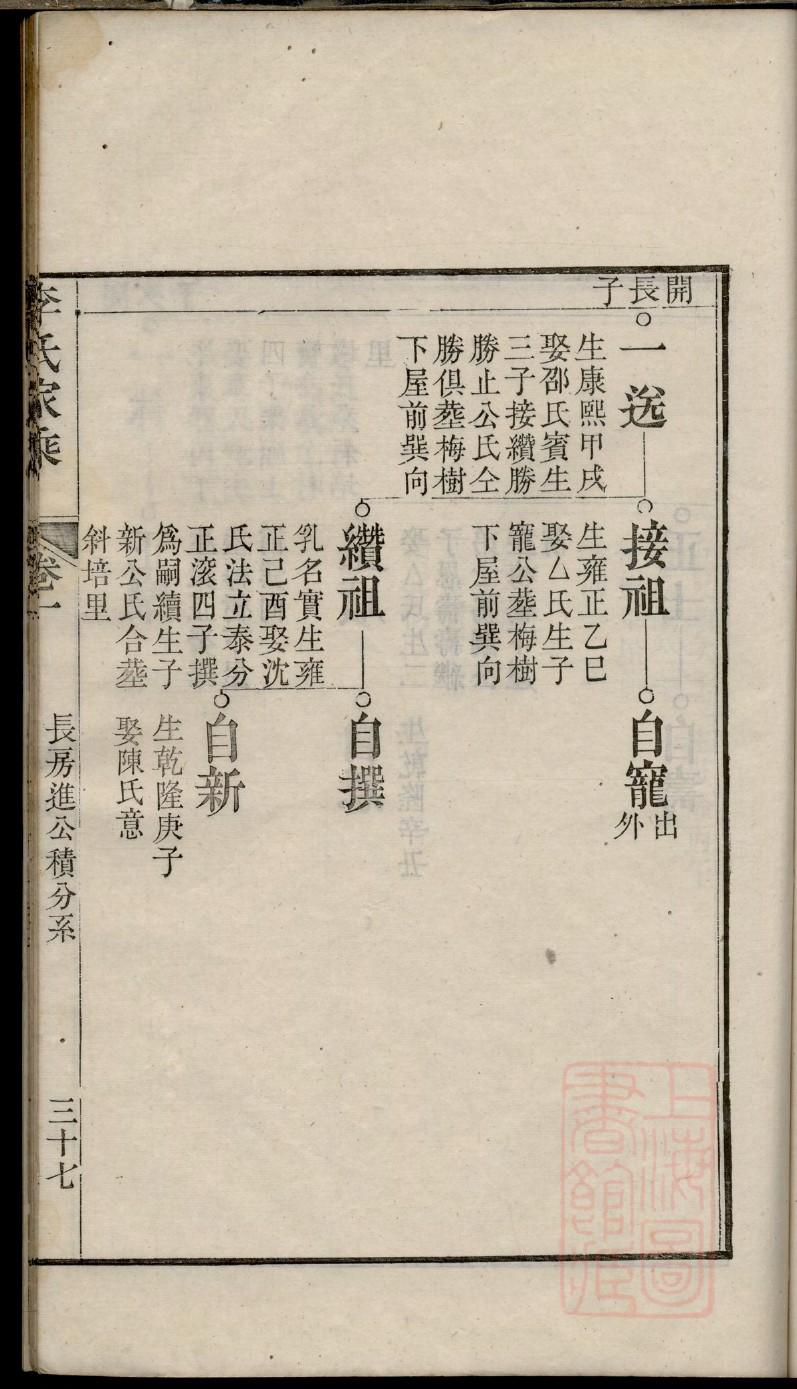 開長子
一送
生康熙甲戌
娶邵氏賓生
三子接纘勝
勝止公氏仝
勝俱塟梅樹
下屋前巽向
接祖
生雍正乙巳
娶厶氏生子
寵公塟梅樹
下屋前巽向
自寵
出外
纘祖
乳名實生雍
正己酉娶沈
氏法立泰分
正滚四子撰
爲嗣續生子
新公氏合塟
斜培里
自撰
自新
生乾隆庚子
娶陳氏意
李氏家乘
卷一
長房進公積分系
三十七
上海圖
書館藏